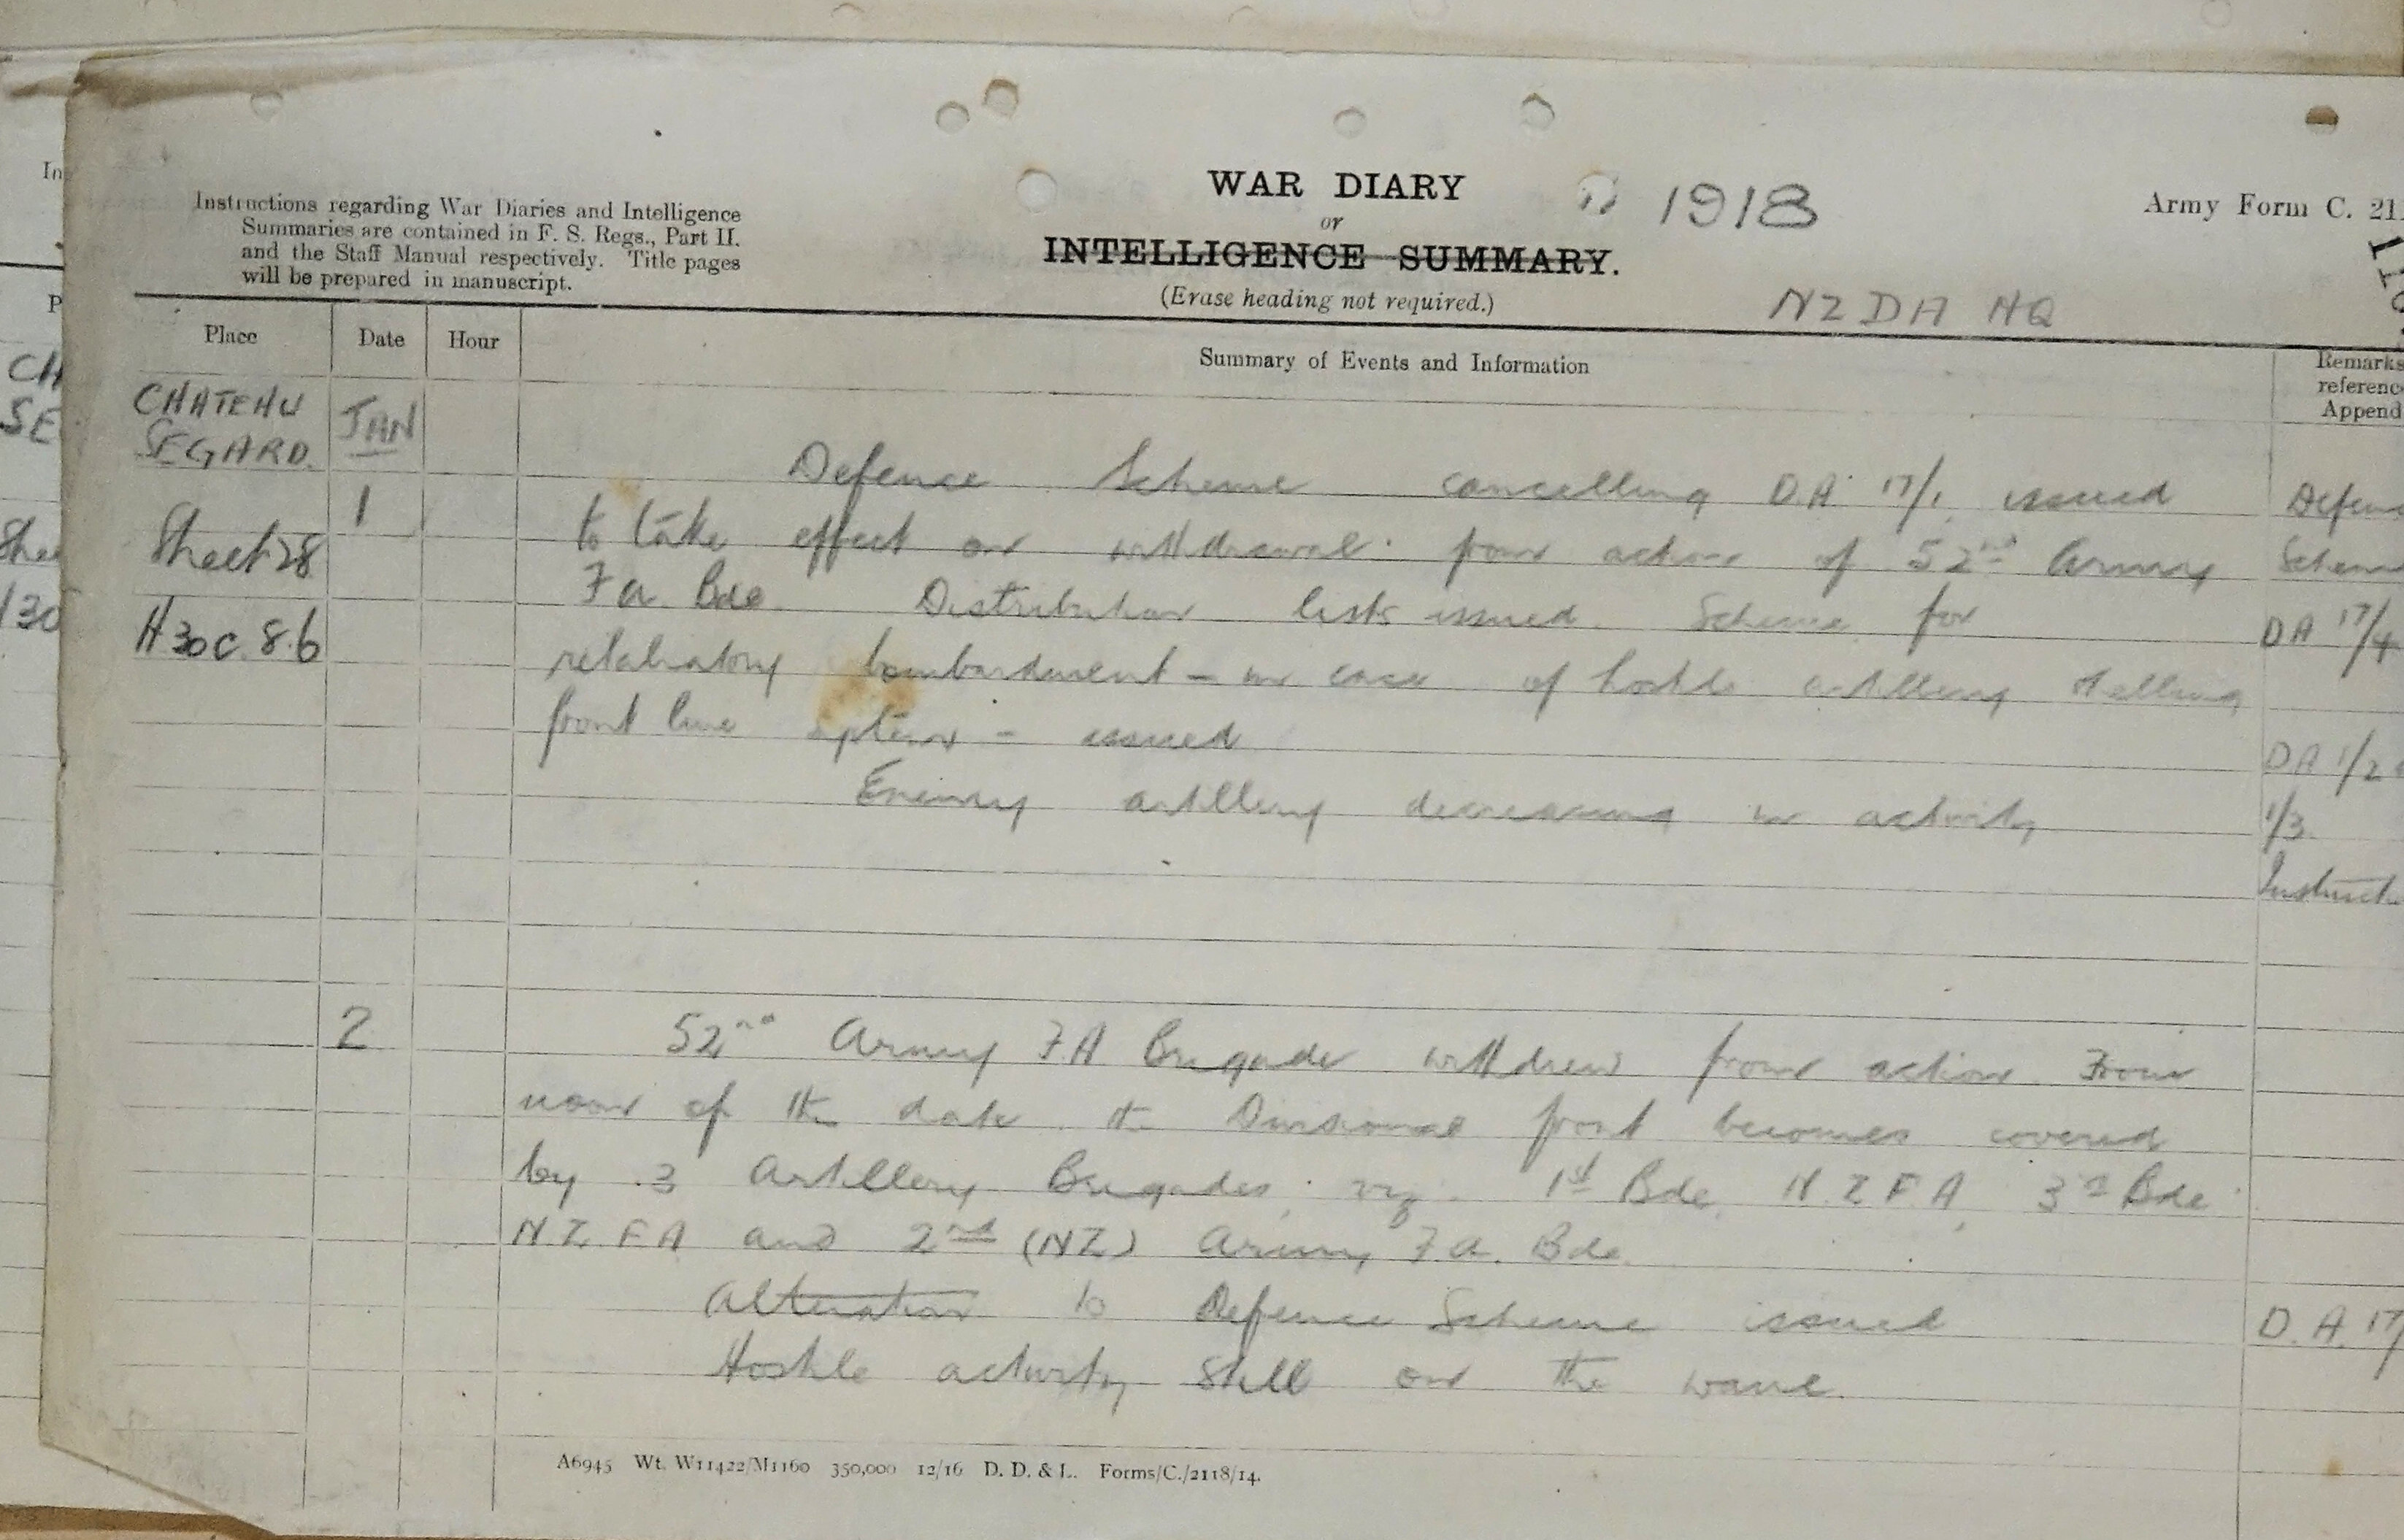 In
P
CH
SE
Shee
130
Instructions regarding War Diaries and Intelligence
Summaries are contained in F. S. Regs., Part II.
and the Staff Manual respectively. Title pages
will be prepared in manuscript.
WAR DIARY
or
INTELLIGENCE SUMMARY.
(Erase heading not required.)
1918
Army Form C. 21
NZ DA HQ
Place
Date
Hour
Summary of Events and Information
Remarks
referenc
Append
CHATEAU
SEGARD.
Sheet 28
H 30 c. 8.6
JAN
1
Defence Scheme cancelling D.A. 17/1 issued
to take effect on withdrawal from action of 52nd Army
F a. Bde. Distribution lists issued. Scheme for
retaliatory bombardment – in case of hostile artillery shelling
front line system – issued
Enemy artillery decreasing in activity
Defenc
Scheme
DA 17/4
DA 1/2
1/3.
Instruct
2
52nd Army F A Brigade withdrew from action. From
noon of the date the Divisional front becomes covered
by 3 Artillery Brigades, viz. 1st Bde. N.Z.F.A, 3rd Bde
N.Z.F.A and 2nd (NZ) Army F.a. Bde.
Alteration to Defence Scheme issued
Hostile activity still on the wane.
D.A. 17/
A6945 Wt. W11422/M1160 350,000 12/16 D. D. & L. Forms/C./2118/14.